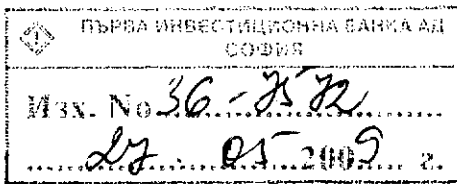 ПЪРВА ИНВЕСТИЦИОННА БАНКА АД
СОФИЯ
Изх. No 36-7572
27. 05 2009 г.